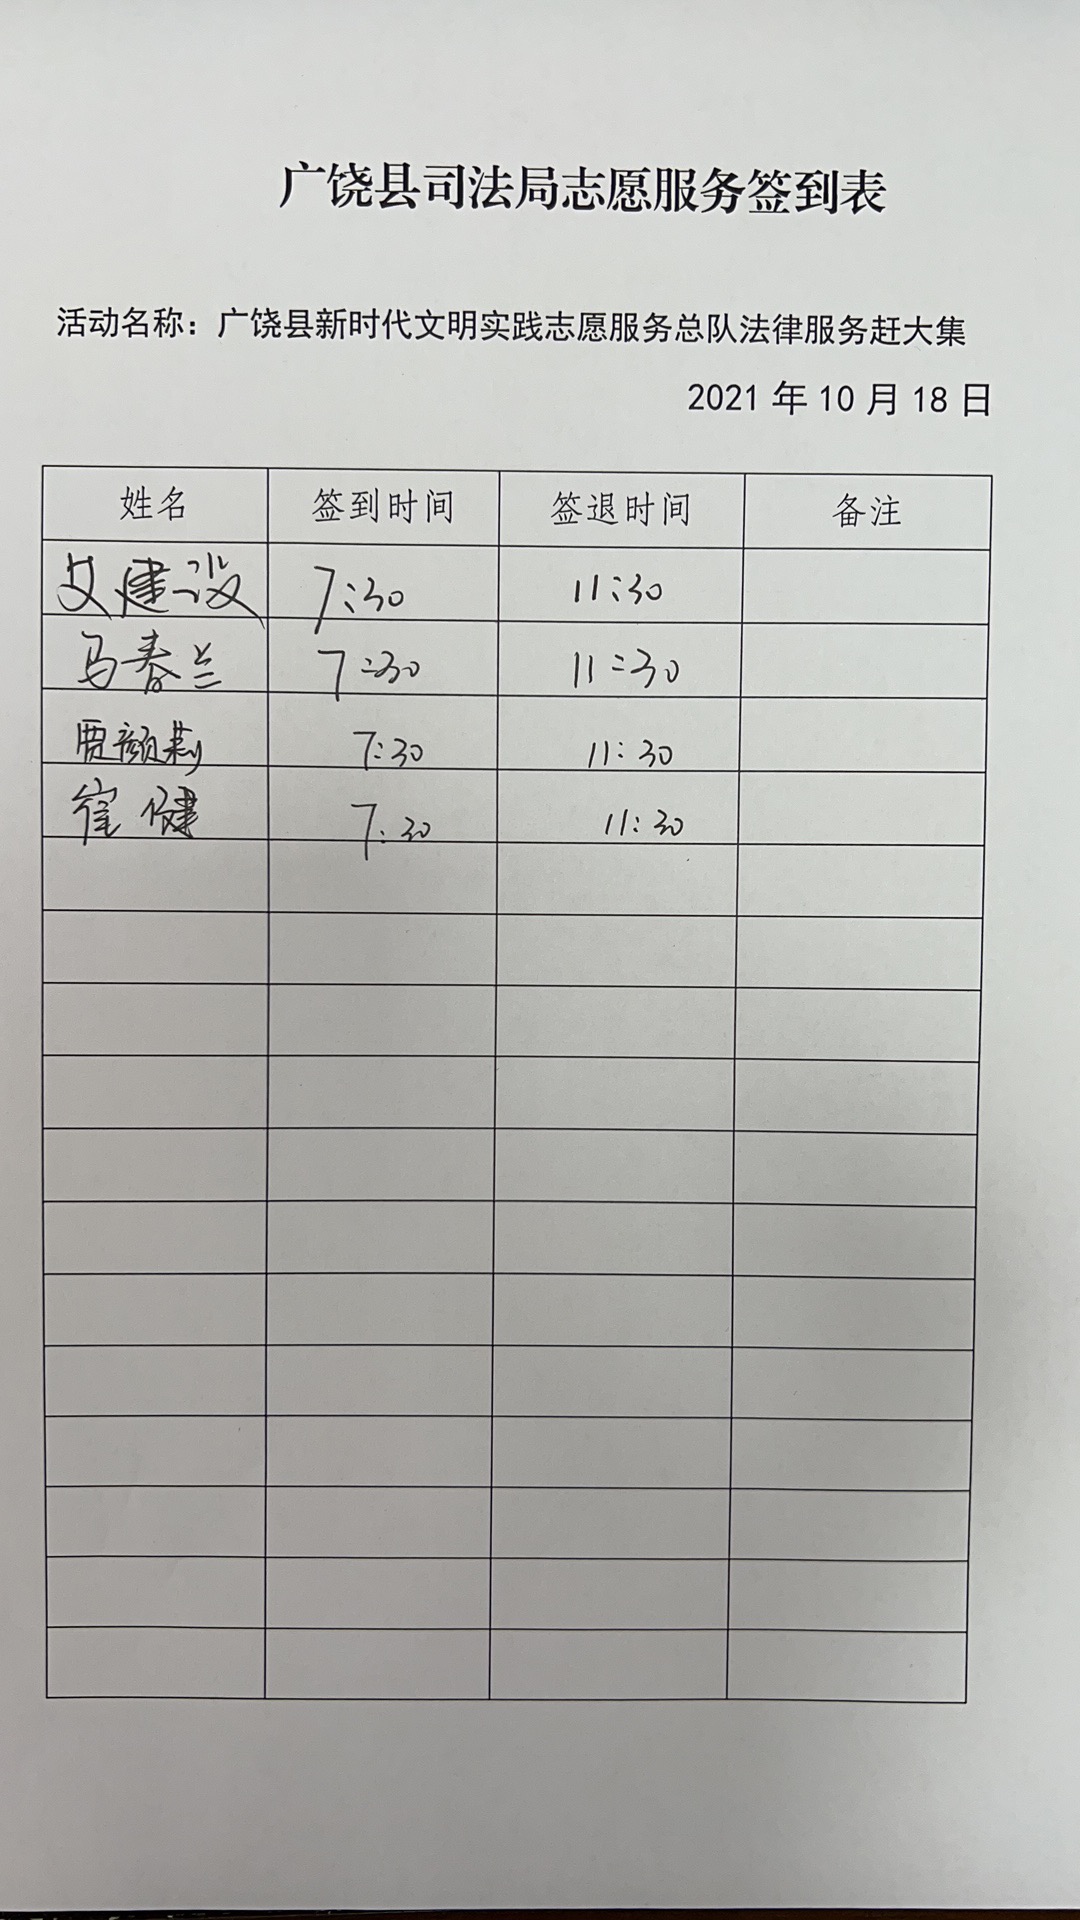 广饶县司法局志愿服务签到表
活动名称：广饶县新时代文明实践志愿服务总队法律服务赶大集
2021 年 10 月 18 日
姓名 签到时间 签退时间 备注
艾建设 7:30 11:30
马春兰 7:30 11:30
贾颜莉 7:30 11:30
崔健 7:30 11:30